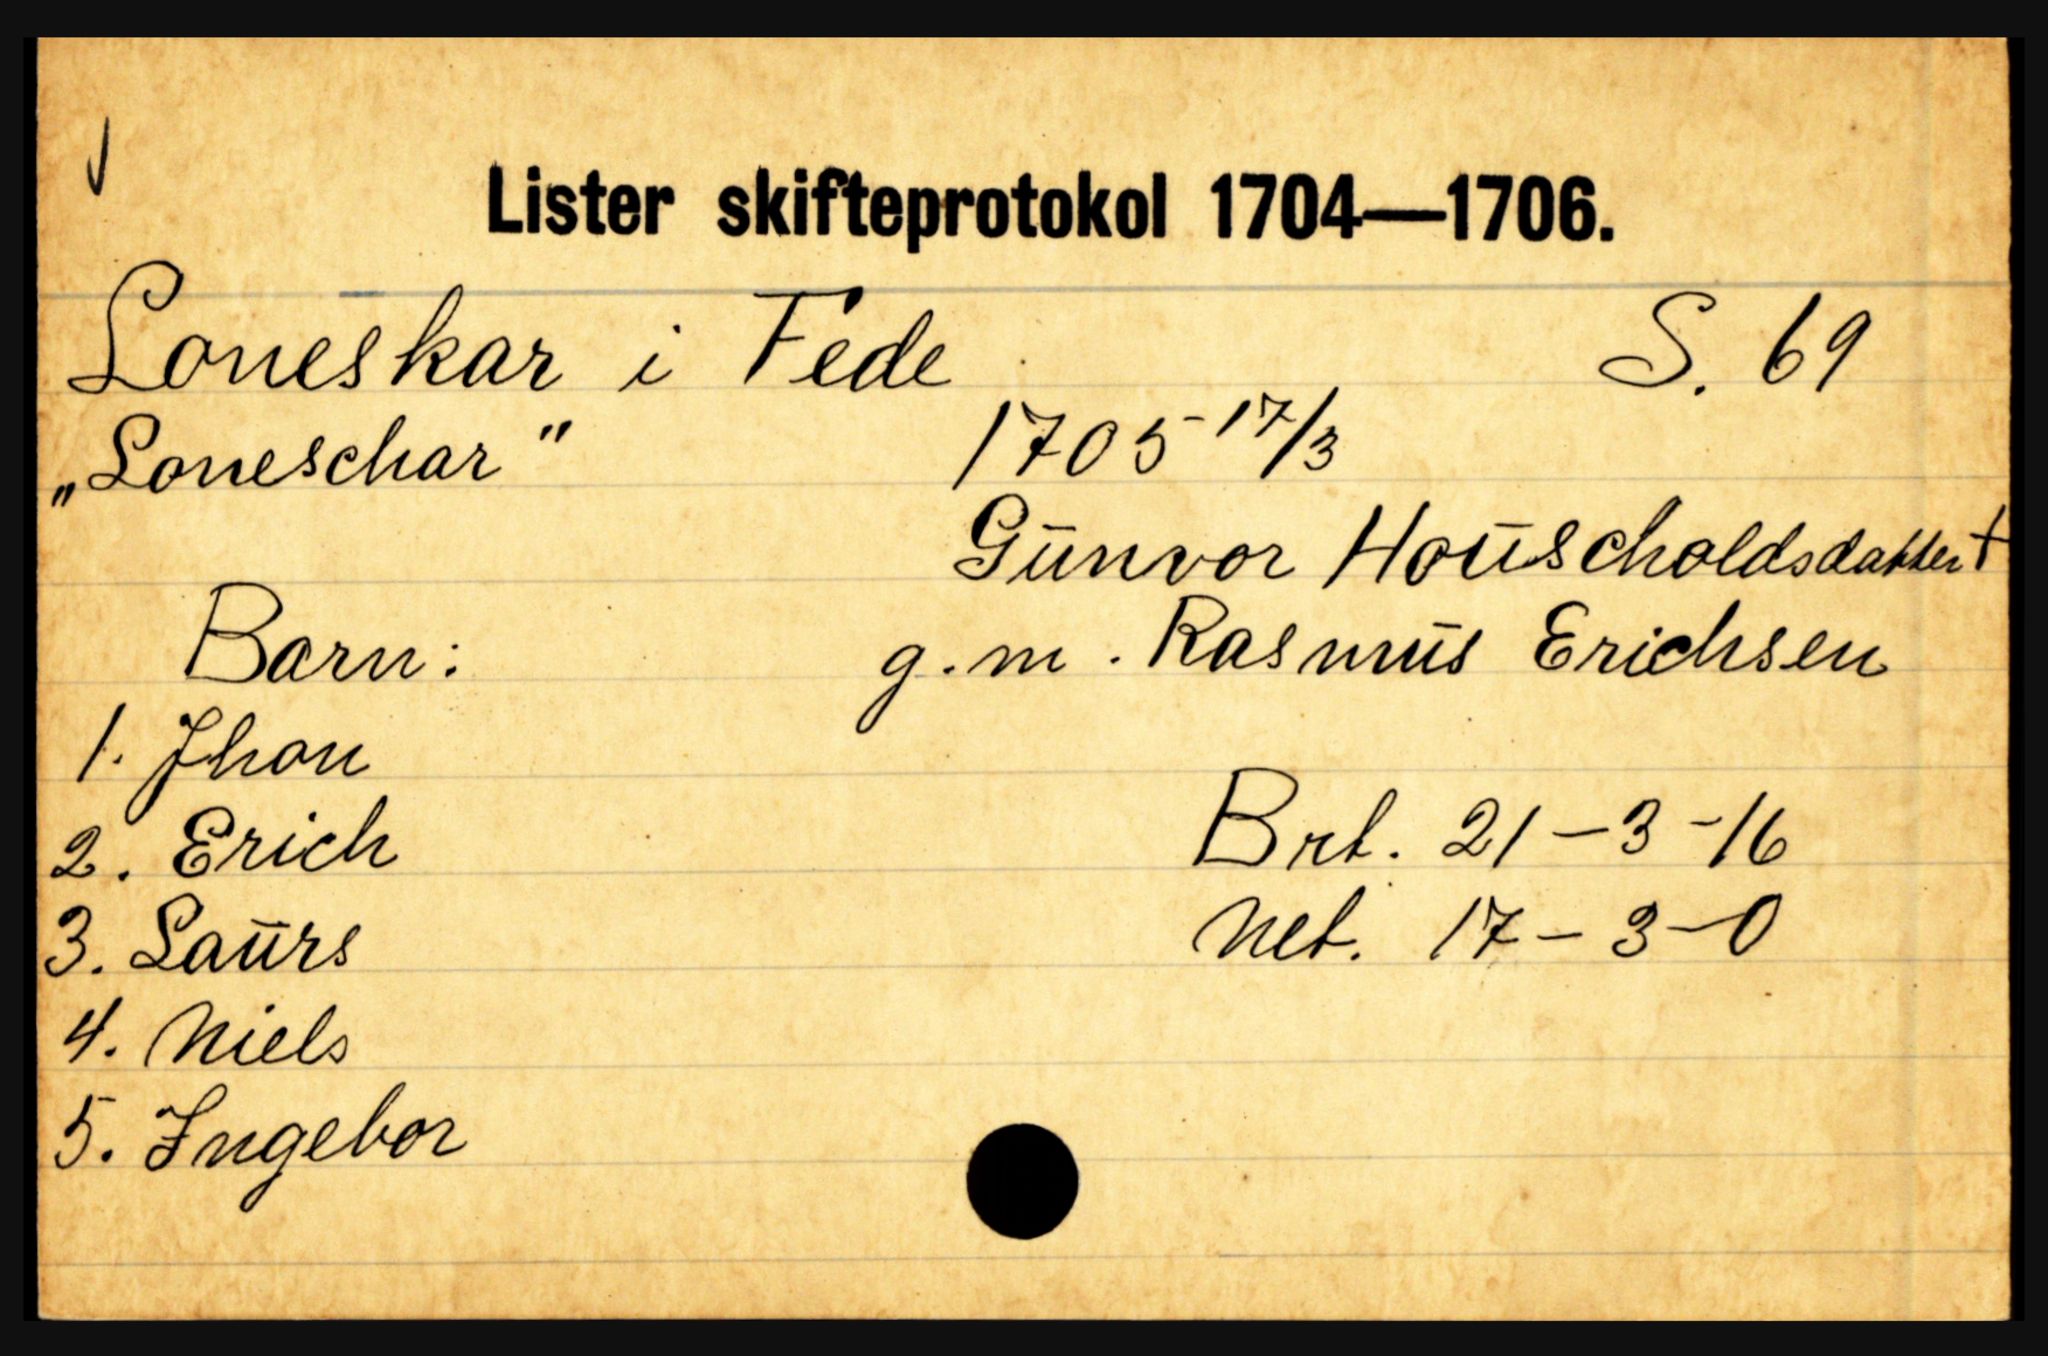 Lister skifteprotokol 1704—1706.
Loneskar i Fede S. 69
„Loneschar" 1705 17/3
Gūnvor Hoūscholdsdatter †
Barn: g.m. Rasmūs Erichsen
1. Jhon
2. Erich Brt. 21-3-16
3. Laūrs Net. 17-3-0
4. Niels
5. Ingebor